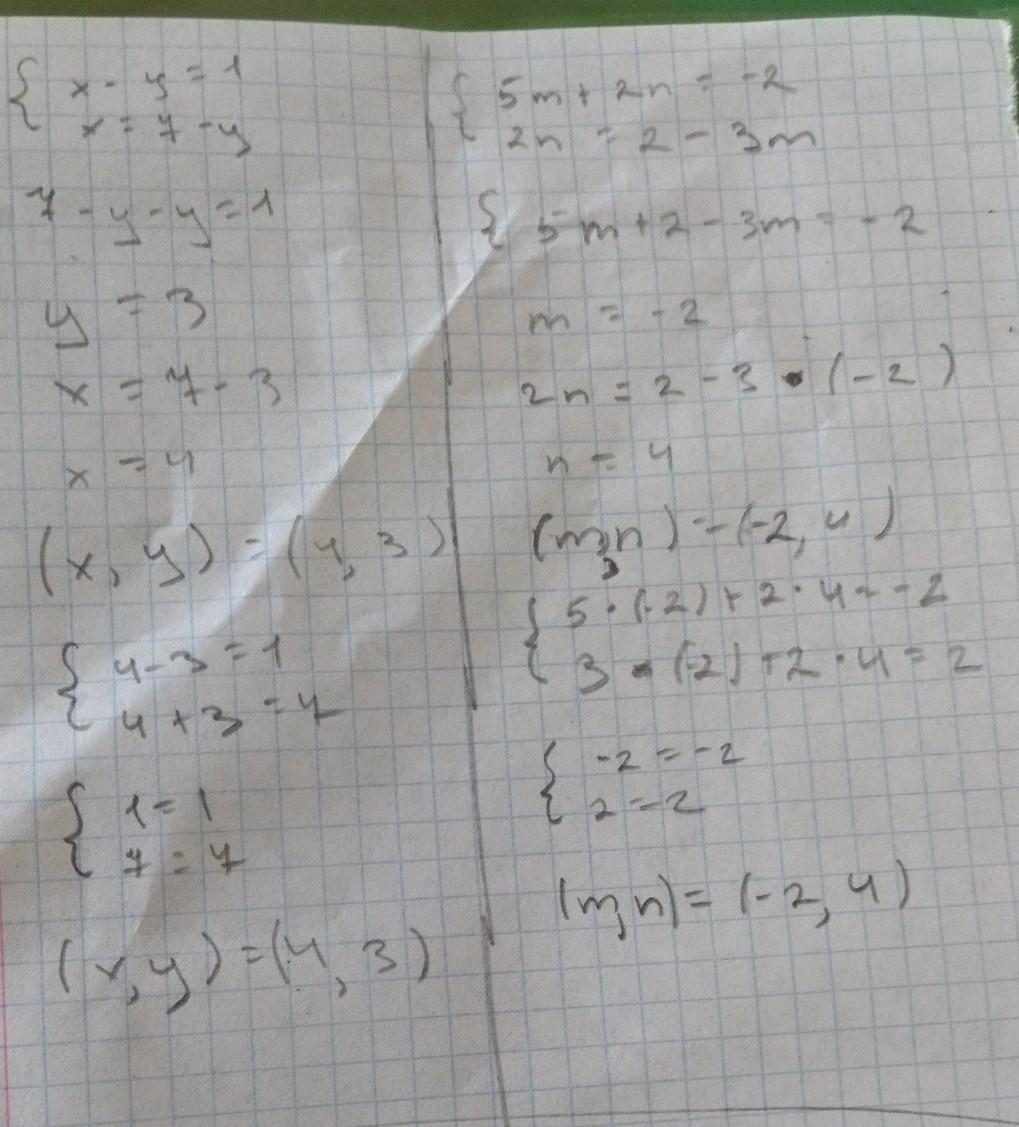 { x - y = 1
x = 7 - y
7 - y - y = 1
y = 3
x = 7 - 3
x = 4
(x, y) = (4, 3)
{ 4 - 3 = 1
4 + 3 = 7
{ 1 = 1
7 = 7
(x, y) = (4, 3)
{ 5m + 2n = -2
2n = 2 - 3m
{ 5m + 2 - 3m = -2
m = -2
2n = 2 - 3 · (-2)
n = 4
(m, n) = (-2, 4)
{ 5 · (-2) + 2 · 4 = -2
3 · (-2) + 2 · 4 = 2
{ -2 = -2
2 = 2
(m, n) = (-2, 4)